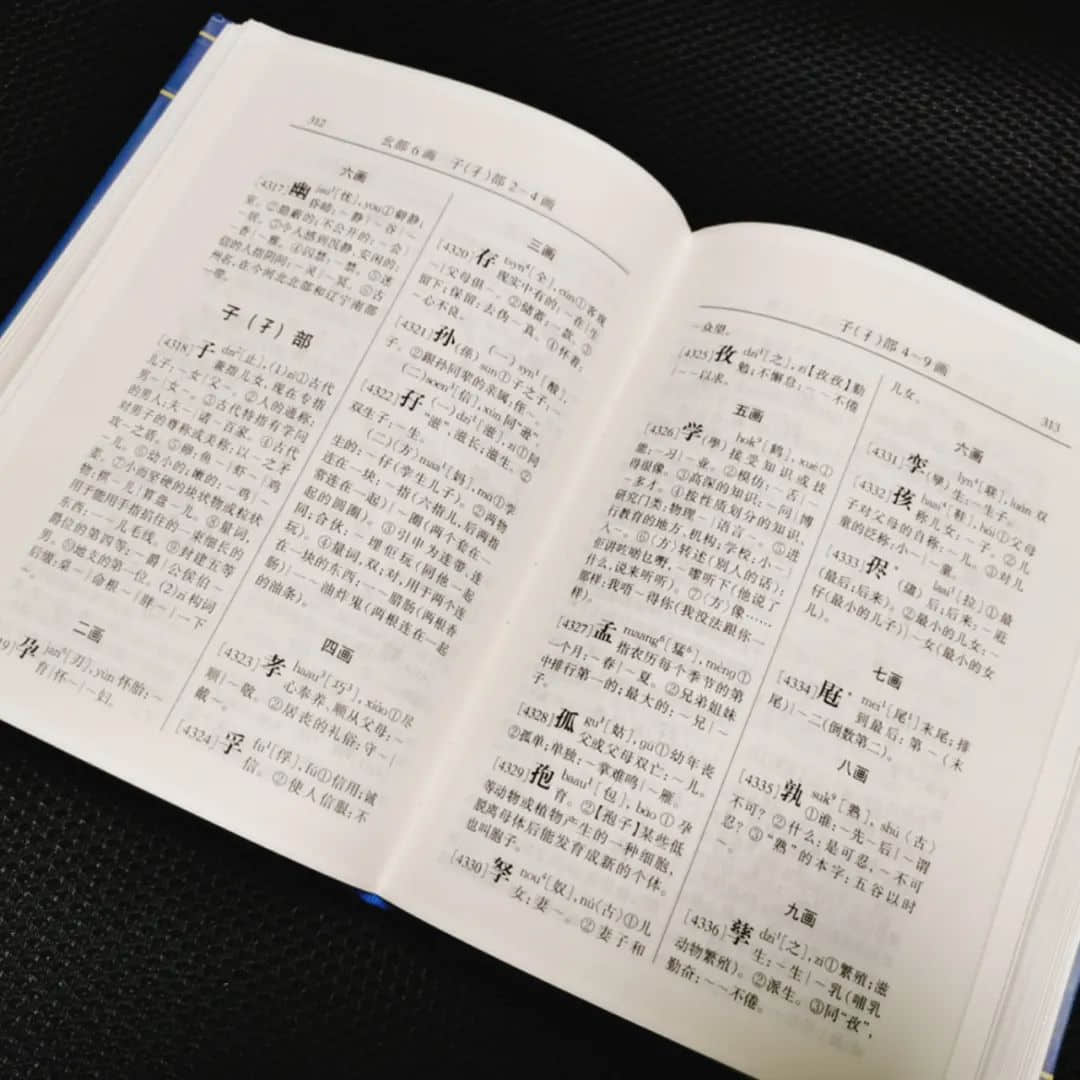 312
玄部6画 子(孑)部2—4画
六画
[4317] 幽 jau¹[忧], yōu①僻静;
昏暗:~静|~谷|~
室。②隐蔽的(不公开的:~会|
~居。③令人感到沉静,安闲的:
~香|~雅。④囚禁:~禁。⑤迷
信的人指阴间:~灵|~冥。⑥古
州名,在今河北北部和辽宁南部
一带。
子(孑)部
[4318] 子 dzi²[止],(1)zǐ①古代
兼指儿女,现在专指
儿子:~女|父~。②人的通称:
男~|女~。③古代特指有学问
的男人:夫~|诸~百家。④古代
对男子的尊称或美称:以~之矛
攻~之盾。⑤卵:鱼~|虾~|鸡
~儿。⑥幼小的;嫩的:~鸡|~
姜。⑦小而坚硬的块状物或粒状
物:棋~儿|算盘~儿。⑧量词,
用于能用手指掐住的一束细长的
东西:一~儿毛线。⑨封建五等
爵位的第四等:~爵|公侯伯~
男。⑩地支的第一位。(2)zi构词
后缀:桌~|命根~|胖~|一下
~。
二画
孕 jan⁶[刃], yùn怀胎:~
育|怀~|~妇。
三画
[4320] 存 tsyn⁴[全], cún①客观
现实中有的:~在|生
~|父母俱~。②储蓄:~款。③
留下;保留:去伪~真。④怀着:
~心不良。
[4321] 孙 (孫) (一) syn¹[酸],
sūn①子之子:~
子。②跟孙同辈的亲属:侄~。
(二) soen³[信], xùn同“逊”。
[4322] 孖 (一) dzi¹[滋], zī①同
“滋”,滋长;滋生。②
双生子:~生。
(二)(方) maa¹[妈], mā①孪
生的:~仔(孪生儿子)。②两物
连在一块:~指(六指儿,后两指
常连在一起)|~圈(两个套在一
起的圆圈)。③引申为连带,连
同;合伙:~埋佢玩(同他一起
玩)。④量词,双;对,用于两个连
在一块的东西:一~腊肠(两根香
肠)|一~油炸鬼(两根连在一起
的油条)。
四画
[4323] 孝 haau³[巧³], xiào①尽
心奉养、顺从父母:~
顺|~敬。②居丧的礼俗:守~|
戴~。
[4324] 孚 fu¹[俘], fú①信用;诚
信。②使人信服:不
子(孑)部4~9画
313
~众望。
[4325] 孜 dzi¹[之], zī【孜孜】勤
勉;不懈怠:~~不倦
|~~以求。
五画
[4326] 学 (學) hok⁹[鹤], xué①
接受知识或技
能:~习|~业。②模仿:~舌|~
得很像。③高深的知识:~问|博
~多才。④按性质划分的知识、
研究门类:物理~|语言~。⑤进
行教育的地方、机构;学校:小~|
入~。⑥(方)转述(别人的话):
佢讲咗啲乜嘢,~嚟听下(他说了
什么,说来听听)。⑦(方)像……
那样:我唔~得你(我没法跟你一
样)。
[4327] 孟 maang⁶[猛⁶], mèng①
指农历每个季节的第
一个月:~春|~夏。②兄弟姐妹
中排行第一的;最大的:~兄|~
子。
[4328] 孤 gu¹[姑], gū①幼年丧
父或父母双亡:~儿。
②孤单;单独:~掌难鸣|~雁。
[4329] 孢 baau¹[包], bāo①孕
育。②【孢子】某些低
等动物或植物产生的一种细胞,
脱离母体后能发育成新的个体。
也叫胞子。
[4330] 孥 nou⁴[奴], nú(古)①儿
女:妻~。②妻子和
儿女。
六画
[4331] 孪 (孿) lyn⁴[联], luán双
生:~生子。
[4332] 孩 haai⁴[鞋], hái①父母
称儿女:~子。②儿
子对父母的自称:~儿。③对儿
童的泛称:小~|~童。
[4333] 孻* (儘) laai¹[拉]①最
后;后来:~逛
(最后;后来)。②最小的儿女:~
仔(最小的儿子)|~女(最小的女
儿)。
七画
[4334] 屘* mei¹[尾¹]末尾;排
到最后:第~(末
尾)|~二(倒数第二)。
八画
[4335] 孰 suk⁹[熟], shú(古)
①谁:~先~后|~谓
不可?②什么:是可忍,~不可
忍?③“熟”的本字:五谷以时
~。
九画
[4336] 孳 dzi¹[之], zī①繁殖;滋
生:~生|~乳(哺乳
动物繁殖)。②派生。③同“孜”,
勤奋:~~不倦。